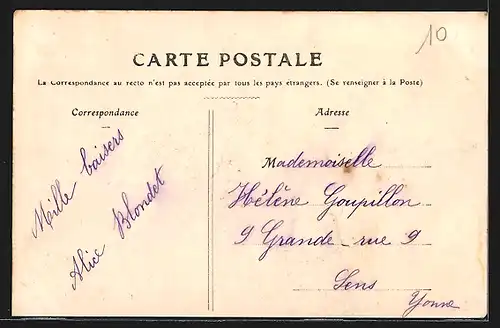 10
CARTE POSTALE
La Correspondance au recto n'est pas acceptée par tous les pays étrangers. (Se renseigner à la Poste)
Correspondance
Mille baisers
Alice Blondet
Adresse
Mademoiselle
Hélène Goupillon
9 Grande-rue 9
Sens
Yonne